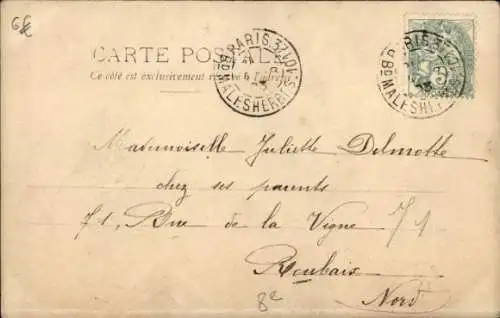 6€
CARTE POSTALE
Ce côté est exclusivement réservé à l'adresse
PARIS 32
Bd MALESHERBES
PARIS
Bd MALESHERBES
Mademoiselle Juliette Delmotte
chez ses parents
71, Rue de la Vigne 71
Roubaix
8e Nord